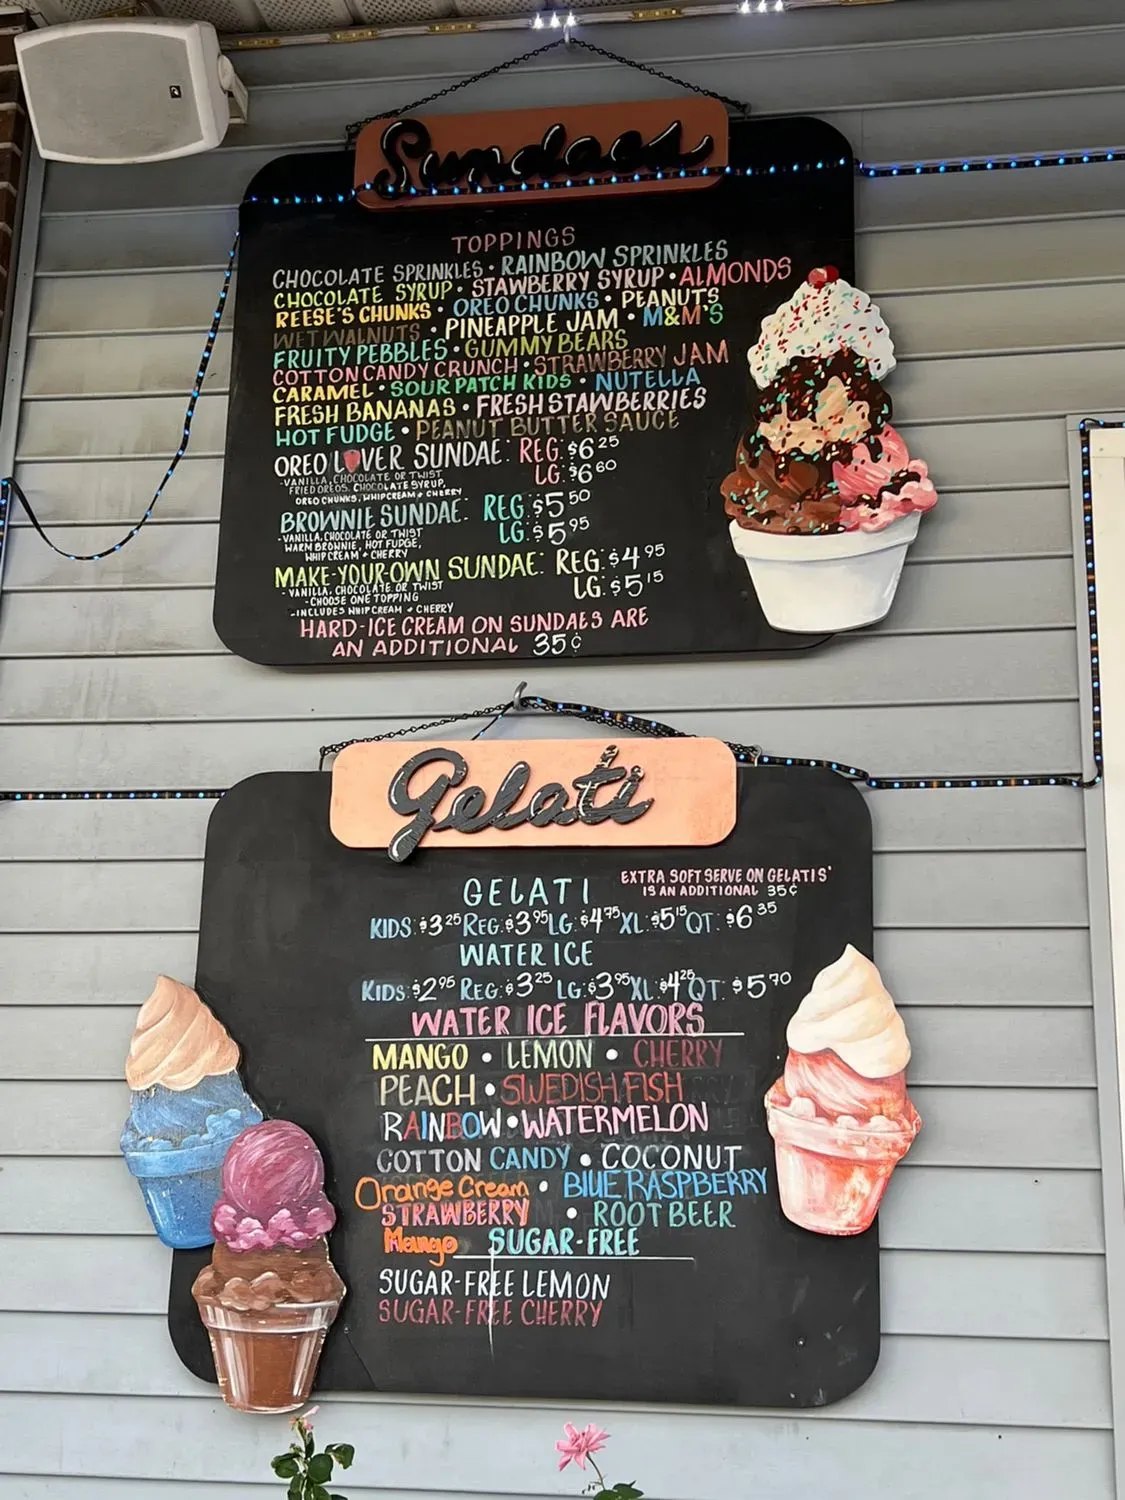 Sundaes
TOPPINGS
CHOCOLATE SPRINKLES • RAINBOW SPRINKLES
CHOCOLATE SYRUP • STAWBERRY SYRUP • ALMONDS
REESE'S CHUNKS • OREO CHUNKS • PEANUTS
WET WALNUTS • PINEAPPLE JAM • M&M'S
FRUITY PEBBLES • GUMMY BEARS
COTTON CANDY CRUNCH • STRAWBERRY JAM
CARAMEL • SOUR PATCH KIDS • NUTELLA
FRESH BANANAS • FRESH STAWBERRIES
HOT FUDGE • PEANUT BUTTER SAUCE
OREO LOVER SUNDAE: REG: $6.25
LG: $6.60
-VANILLA, CHOCOLATE OR TWIST
FRIED OREOS, CHOCOLATE SYRUP,
OREO CHUNKS, WHIPCREAM + CHERRY
BROWNIE SUNDAE: REG: $5.50
LG: $5.95
-VANILLA, CHOCOLATE OR TWIST
WARM BROWNIE, HOT FUDGE,
WHIPCREAM + CHERRY
MAKE-YOUR-OWN SUNDAE: REG: $4.95
LG: $5.15
-VANILLA, CHOCOLATE OR TWIST
-CHOOSE ONE TOPPING
-INCLUDES WHIPCREAM + CHERRY
HARD-ICE CREAM ON SUNDAES ARE
AN ADDITIONAL 35¢
Gelati
EXTRA SOFT SERVE ON GELATIS'
IS AN ADDITIONAL 35¢
GELATI
KIDS: $3.25 REG: $3.95 LG: $4.75 XL: $5.15 QT: $6.35
WATER ICE
KIDS: $2.95 REG: $3.25 LG: $3.95 XL: $4.25 QT: $5.70
WATER ICE FLAVORS
MANGO • LEMON • CHERRY
PEACH • SWEDISH FISH
RAINBOW • WATERMELON
COTTON CANDY • COCONUT
Orange Cream • BLUE RASPBERRY
STRAWBERRY • ROOT BEER
Mango SUGAR-FREE
SUGAR-FREE LEMON
SUGAR-FREE CHERRY